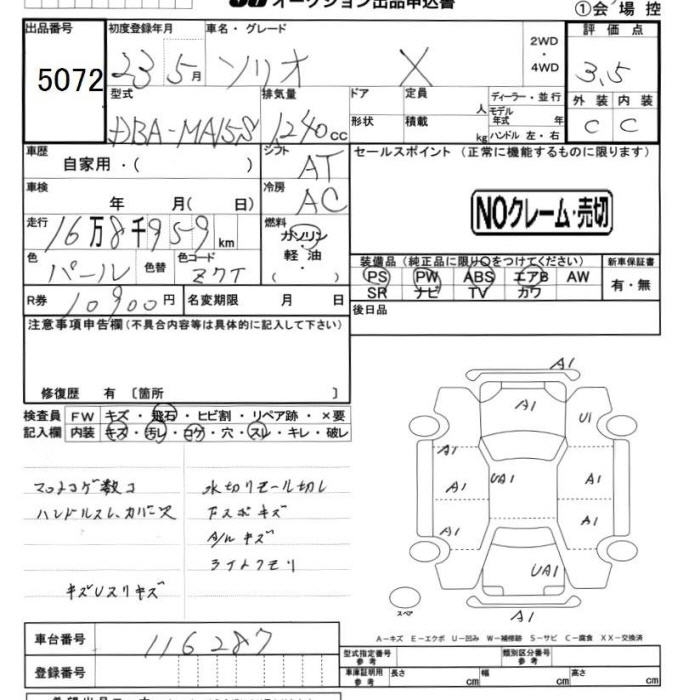 オークション出品申込書
①会場控
出品番号 初度登録年月 車名・グレード 2WD ・ 4WD 評価点
5072 23 5月 ソリオ X 3.5
型式 排気量 ドア 定員 人 ディーラー・並行 外装 内装
DBA-MA15S 1,240cc 形状 積載 kg モデル年式 年 ハンドル 左・右 C C
車歴 自家用・( ) シフト AT セールスポイント (正常に機能するものに限ります)
車検 年 月( 日) 冷房 AC
NOクレーム・売切
走行 16万8千959km 燃料 ガソリン・軽油・( )
色 パール 色替 色コード Z7T
装備品 (純正品に限り○をつけてください) 新車保証書
PS PW ABS エアB AW 有・無
SR ナビ TV カワ
R券 10900円 名変期限 月 日 後日品
注意事項申告欄 (不具合内容等は具体的に記入して下さい)
修復歴 有 〔箇所 〕
検査員 FW キズ・飛石・ヒビ割・リペア跡・×要
記入欄 内装 キズ・汚レ・コゲ・穴・スレ・キレ・破レ
マット コゲ数コ 水切リモール切レ
ハンドルスレ、カバース 下スポキズ
A/Wキズ
ライトクモリ
キズUスリキズ
A1
A1 U1
A1
A1 UA1 A1
A1 A1
UA1
スペア A1
A-キズ E-エクボ U-凹み W-補修跡 S-サビ C-腐食 XX-交換済
車台番号 116287 型式指定番号 参考 類別区分番号 参考
登録番号 車庫証明用 参考 長さ cm 幅 cm 高さ cm